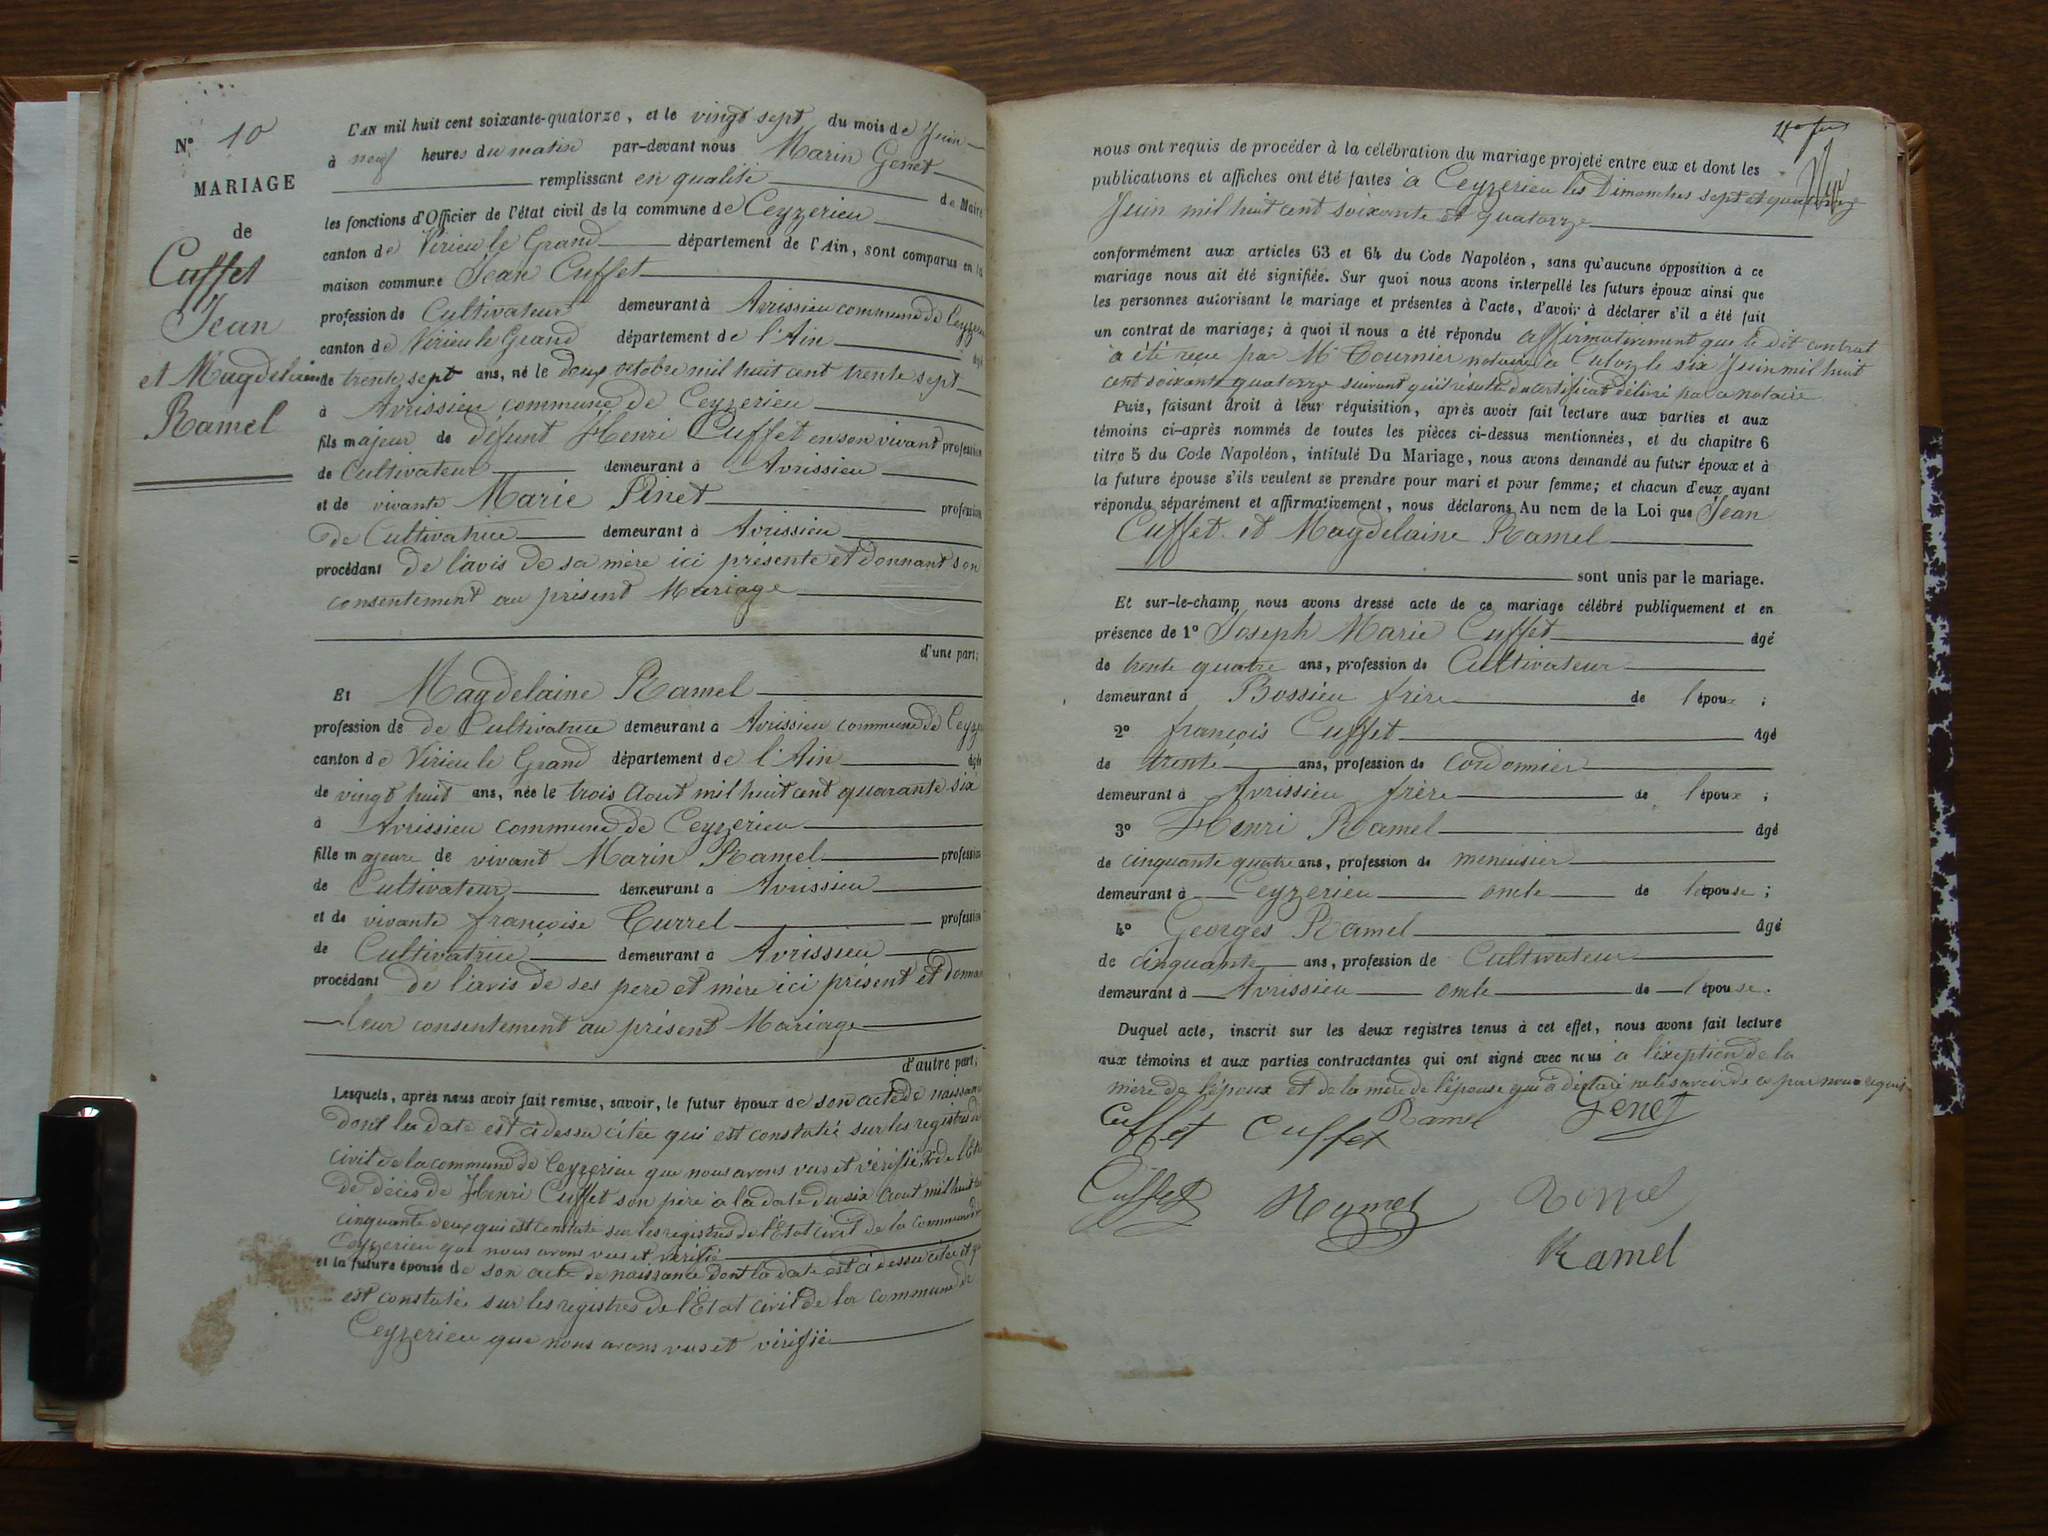 N° 10
MARIAGE
de
Cuffet
Jean
et Magdelaine
Ramel
L'AN mil huit cent soixante-quatorze, et le vingt sept du mois de Juin
à neuf heures du matin par-devant nous Marin Genet
remplissant en qualité de Maire
les fonctions d'Officier de l'état civil de la commune de Ceyzerieu
canton de Virieu le Grand département de l'Ain, sont comparus en la
maison commune Jean Cuffet
profession de Cultivateur demeurant à Avrissieu commune de Ceyzerieu
canton de Virieu le Grand département de l'Ain âgé
de trente sept ans, né le deux octobre mil huit cent trente sept
à Avrissieu commune de Ceyzerieu
fils majeur de défunt Henri Cuffet en son vivant profession
de Cultivateur demeurant à Avrissieu
et de vivante Marie Pinet profession
de Cultivatrice demeurant à Avrissieu
procédant de l'avis de sa mère ici présente et donnant son
consentement au présent Mariage
d'une part;
Et Magdelaine Ramel
profession de de Cultivatrice demeurant à Avrissieu commune de Ceyze
canton de Virieu le Grand département de l'Ain âgée
de vingt huit ans, née le trois Aout mil huit cent quarante six
à Avrissieu commune de Ceyzerieu
fille majeure de vivant Marin Ramel profession
de Cultivateur demeurant à Avrissieu
et de vivante françoise Currel profession
de Cultivatrice demeurant à Avrissieu
procédant de l'avis de ses pere et mère ici présent et donnant
leur consentement au présent Mariage
d'autre part;
Lesquels, après nous avoir fait remise, savoir, le futur époux de son acte de naissance
dont la date est ci dessu citée qui est constatée sur les registres de
civil de la commune de Ceyzerieu que nous avons vus et vérifié, de l'Etat
de décès de Henri Cuffet son père à la date du six Aout mil huit cent
cinquante deux qui est constaté sur les registres de l'Etat civil de la commune de
Ceyzerieu que nous avons vus et vérifié
et la future épouse de son acte de naissance dont la date est ci dessu citée et qui
est constatée sur les registres de l'Etat civil de la commune de
Ceyzerieu que nous avons vus et vérifié
nous ont requis de procéder à la célébration du mariage projeté entre eux et dont les
publications et affiches ont été faites à Ceyzerieu les Dimanches sept et quatorze
Juin mil huit cent soixante et quatorze
conformément aux articles 63 et 64 du Code Napoléon, sans qu'aucune opposition à ce
mariage nous ait été signifiée. Sur quoi nous avons interpellé les futurs époux ainsi que
les personnes autorisant le mariage et présentes à l'acte, d'avoir à déclarer s'il a été fait
un contrat de mariage; à quoi il nous a été répondu affirmativement que le dit contrat
à été reçu par Me Tournier notaire à Culoz le six Juin mil huit
cent soixante quatorze suivant qu'il résulte du certificat délivré par ce notaire
Puis, faisant droit à leur réquisition, après avoir fait lecture aux parties et aux
témoins ci-après nommés de toutes les pièces ci-dessus mentionnées, et du chapitre 6
titre 5 du Code Napoléon, intitulé Du Mariage, nous avons demandé au futur époux et à
la future épouse s'ils veulent se prendre pour mari et pour femme; et chacun d'eux ayant
répondu séparément et affirmativement, nous déclarons Au nom de la Loi que Jean
Cuffet et Magdelaine Ramel
sont unis par le mariage.
Et sur-le-champ nous avons dressé acte de ce mariage célébré publiquement et en
présence de 1° Joseph Marie Cuffet âgé
de trente quatre ans, profession de Cultivateur
demeurant à Bossieu frère de l'époux ;
2° françois Cuffet âgé
de trente ans, profession de cordonnier
demeurant à Avrissieu frère de l'époux ;
3° Henri Ramel âgé
de cinquante quatre ans, profession de menuisier
demeurant à Ceyzerieu oncle de l'épouse ;
4° Georges Ramel âgé
de cinquante ans, profession de Cultivateur
demeurant à Avrissieu oncle de l'épouse.
Duquel acte, inscrit sur les deux registres tenus à cet effet, nous avons fait lecture
aux témoins et aux parties contractantes qui ont signé avec nous à l'exeption de la
mère de l'époux et de la mère de l'épouse qui à déclaré ne le savoir de ce par nous requis
Cuffet Cuffet Ramel Genet
Cuffet Ramel Ramel
Ramel